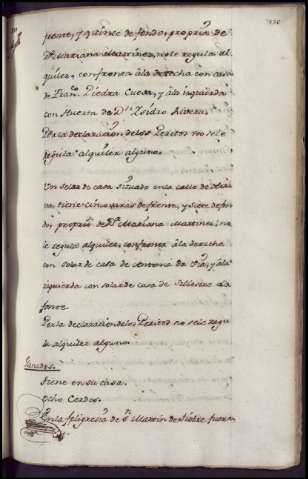 frente, y quince de fondo, propria de
Dª Mariana Martinez, no le regula al
quiler, confronta âla derecha con casa
de Franco Piedra Cueva, y âla izquierda
con Huerta de Dn Ysidro Rivera.
Por la declaracion delos Peritos no sele
regula alquiler alguno.
Un solar de casa situado en la calle de
tiene cinco varas de frente, y siete de fon
do: proprio de Dª Mariana Martinez, no
le regula alquiler, confronta âla derecha
con solar de casa de Antonia y âla
izquierda con solar de casa de Silvestre
Por la declaracion delos Peritos no sele regu
la alquiler alguno
Ganados.
Tiene en su casa.
Ocho Cerdos.
En la feligresia de Sn Martin de